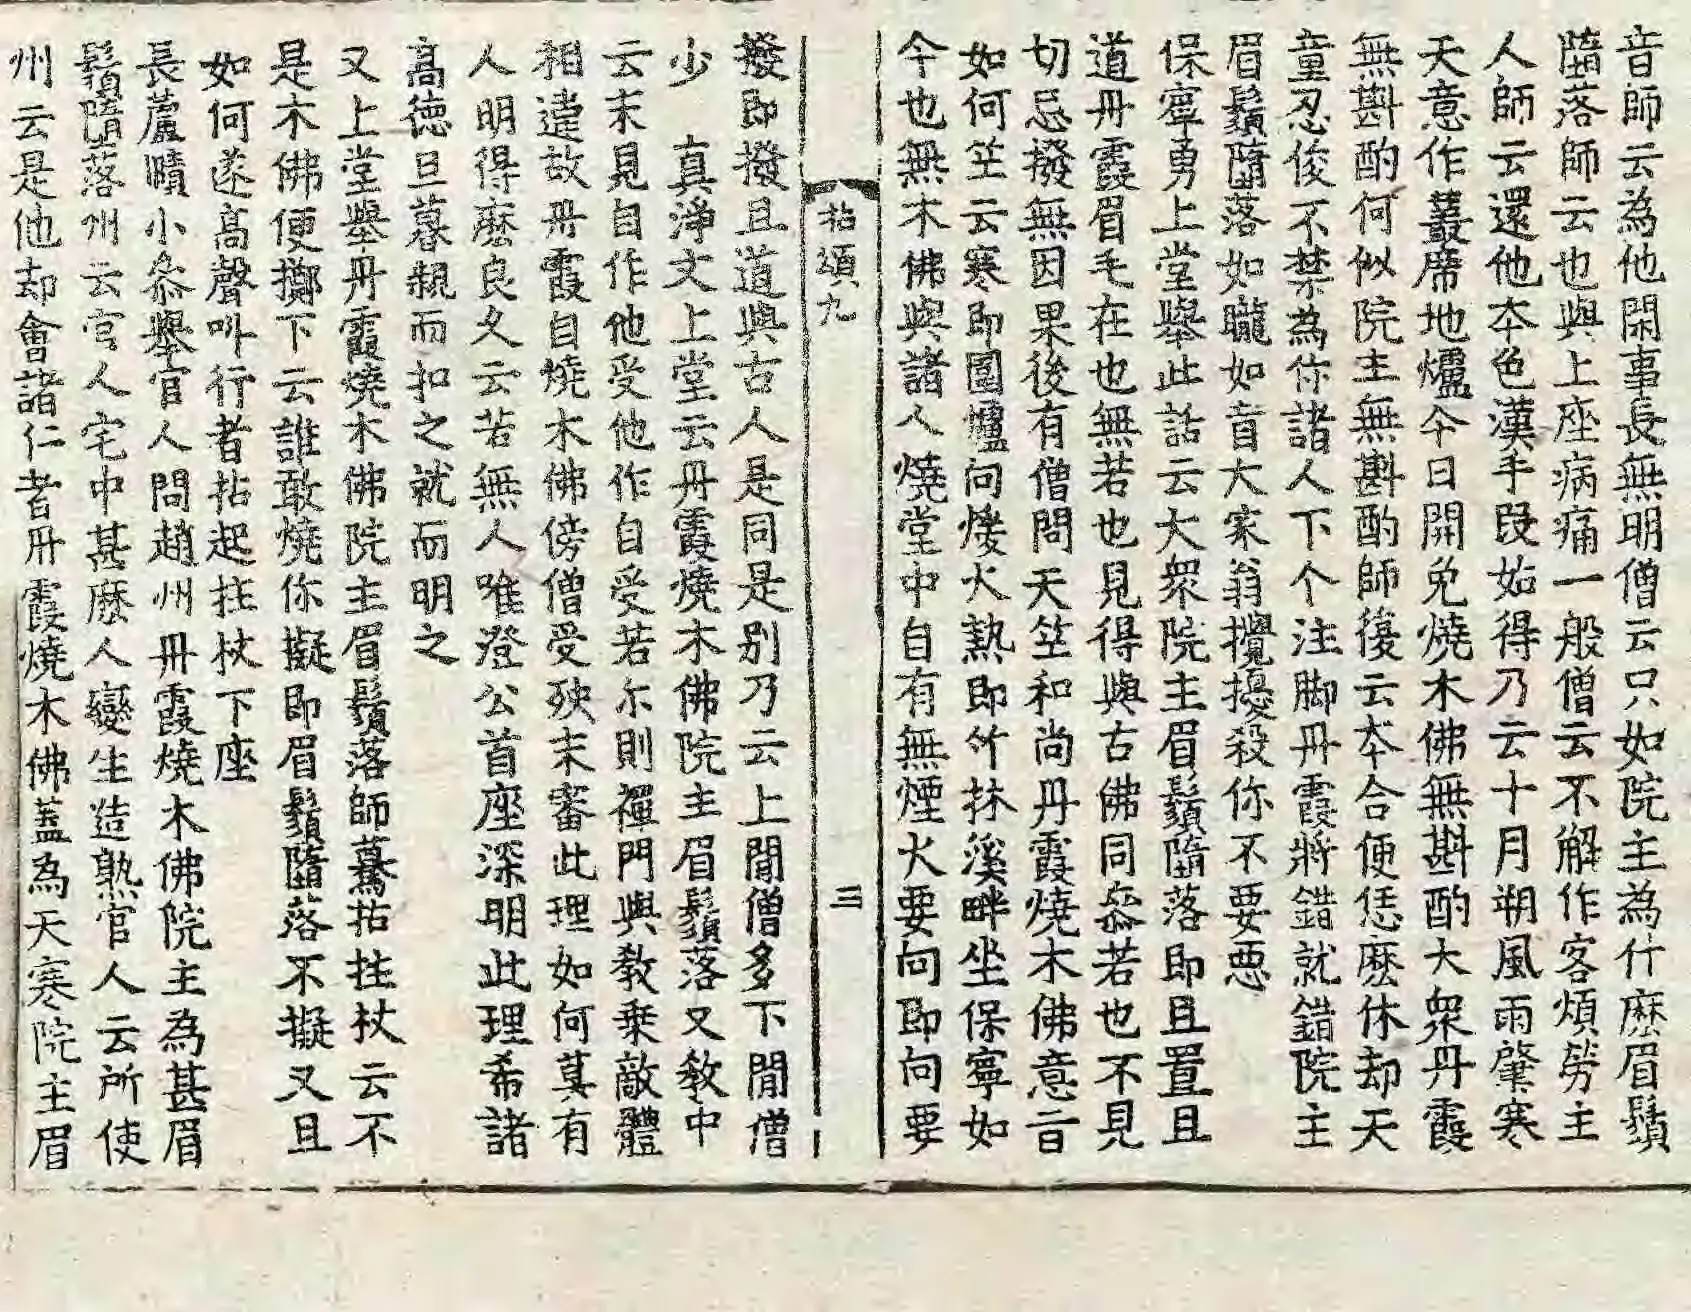 音師云為他閑事長無明僧云只如院主為什麽眉鬚
隨落師云也與上座病痛一般僧云不解作客煩勞主
人師云還他本色漢手段始得乃云十月朔風雨肇寒
天意作叢席地爐今日開免燒木佛無斟酌大衆丹霞
無斟酌何似院主無斟酌師復云本合便恁麽休却天
童忍俊不禁為你諸人下个注脚丹霞將錯就錯院主
眉鬚隨落如聾如盲大家翁攪擾殺你不要惡
保寧勇上堂舉此話云大衆院主眉鬚隨落即且置且
道丹霞眉毛在也無若也見得與古佛同叅若也不見
切忌撥無因果後有僧問天竺和尚丹霞燒木佛意旨
如何竺云寒即圍爐向煖火熱即竹林溪畔坐保寧如
今也無木佛與諸人燒堂中自有無煙火要向即向要
拈頌九
三
撥即撥且道與古人是同是别乃云上閒僧多下閒僧
少 真淨文上堂云丹霞燒木佛院主眉鬚落又教中
云末見自作他受他作自受若尒則禪門與敎乗敵體
相違故丹霞自燒木佛傍僧受殃末審此理如何莫有
人明得麽良久云若無人唯澄公首座深明此理希諸
高德旦暮親而扣之就而明之
又上堂舉丹霞燒木佛院主眉鬚落師驀拈拄杖云不
是木佛便擲下云誰敢燒你擬即眉鬚隨落不擬又且
如何遂高聲叫行者拈起拄杖下座
長蘆賾小叅舉官人問趙州丹霞燒木佛院主為甚眉
鬚隨落州云官人宅中甚麽人變生造熟官人云所使
州云是他却會諸仁者丹霞燒木佛蓋為天寒院主眉